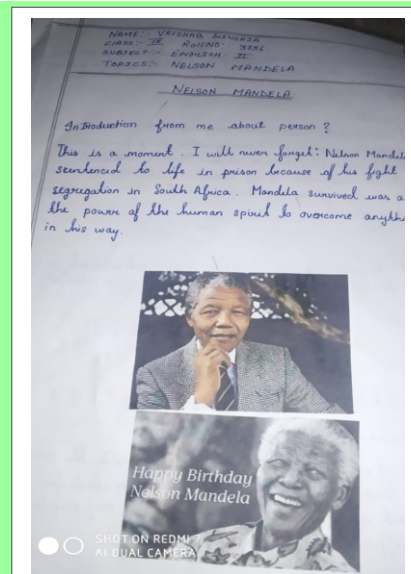 NAME:- VRISHAB
CLASS:- IX ROLLNO: 3756
SUBJECT:- ENGLISH II
TOPICS:- NELSON MANDELA
NELSON MANDELA
Introduction from me about person ?
This is a moment. I will never forget: Nelson Mandela
sentenced to life in prison because of his fight
segregation in South Africa. Mandela survived was a
the power of the human spirit to overcome
in his way.
Happy Birthday
Nelson Mandela
SHOT ON REDMI 7
AI DUAL CAMERA